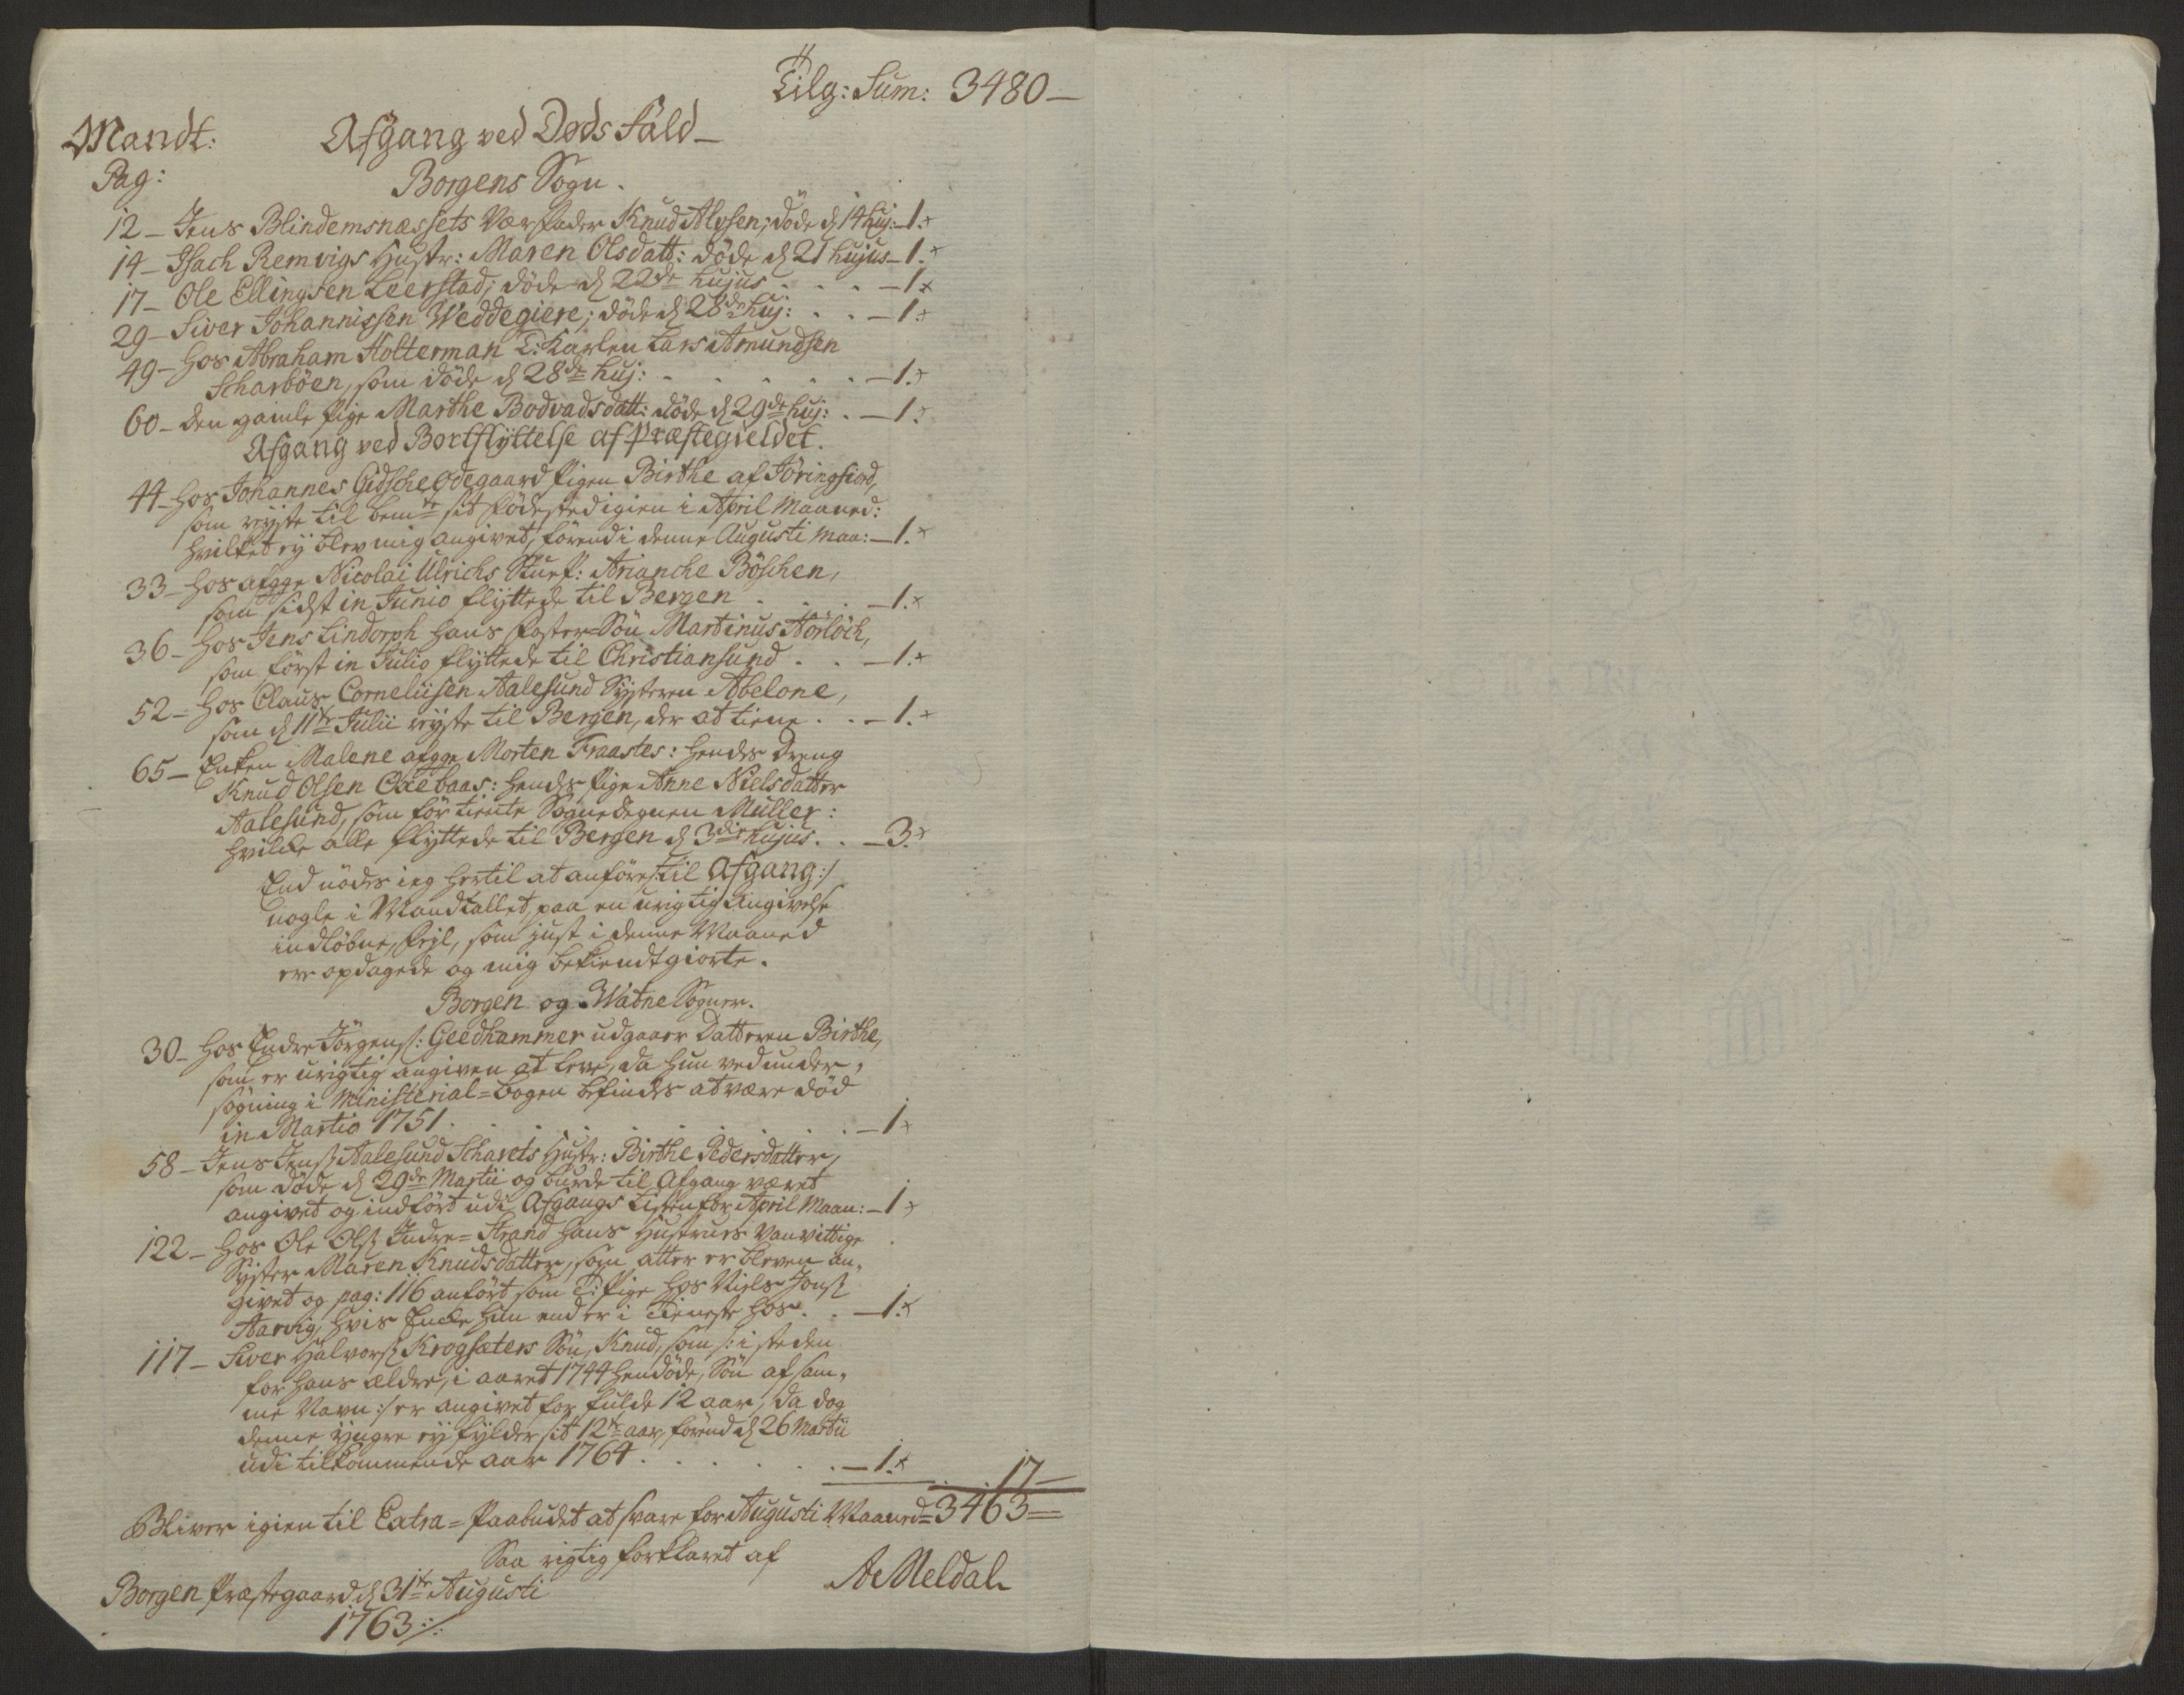 Tilg: Sum: 3480 –
Mandt: Afgang ved Døds Fald –
Pag:
Borgens Sogn.
12 – Jens Blindemsnæssets Værfader Knud Alvsen; døde d 14 huj: – 1.
14 – Isach Remvigs Hustr: Maren Olsdatt: døde d 21 hujus – 1.
17 – Ole Ellingsen Leerstad; døde d 22de hujus . . . – 1
29 – Siver Johannissen Weddegiere; døde d 28de huj: . . – 1.
49 – hos Abraham Holterman T: Karlen Lars Amundsen
Scharbøen, som døde d 28de huj: . . . . . – 1.
60 – den gamle Pige Marthe Bodvadsdatt: døde d 29de huj: . – 1.
Afgang ved Bortflyttelse af Præstegieldet.
44 – hos Johannes Gidsche Ødegaard Pigen Birthe af Jøringfiord,
som reyste til bemte sit Fødested igien i April Maaned:
hvilket ey blev mig angivet, førend i denne Augusti Maa: – 1.
33 – hos afgge Nicolai Ulrichs Stuef: Arianche Bøschen,
som sidst in Junio flyttede til Bergen . . . . – 1.
36 – hos Jens Lindorph hans Foster-Søn Martinus Hørløch,
som først in Julio flyttede til Christiansund . . – 1.
52 – hos Claus Corneliisen Aalesund Systeren Abelone,
som d 11te Julii reyste til Bergen, der at tiene . . – 1.
65 – Enken Malene afgge Morten Fraastes: hendes Dreng
Knud Olsen Oxebaas: hendes Pige Anne Nielsdatter
Aalesund, som før tiente Sognedegnen Müller:
hvilcke alle flyttede til Bergen d 3die hujus . . – 3.
End nødes ieg hertil at anføre /: til Afgang :/
nogle i Mandtallet, paa en urigtig Angivelse
indløbne, Feyl, som just i denne Maaned
ere opdagede og mig bekiendtgiorte.
Borgen og Watne Sogner.
30 – hos Endre Jørgens: Geedhammer udgaaer Datteren Birthe,
som er urigtig angiven at leve, da hun ved under,
søgning i Ministerial=bogen befindes at være død
in Martio 1751 . . . . . . . . – 1
58 – Jens Jens: Aalesund Scharets Hustr: Birthe Pedersdatter,
som døde d 29de Martii og burde til Afgang været
angivet og indført udi Afgangs Listen for April Maan: – 1
122 – hos Ole Ols: Indre=Strand hans Hustrues vanvittige
Syster Maren Knudsdatter, som atter er bleven an,
givet og pag: 116 anført som T: Pige hos Niels Jons:
Aarvig, hvis Encke hun end er i Tieneste hos . . – 1.
117 – Siver Halvors: Krogsæters Søn, Knud, som /: i steden
for hans ældre, i aaret 1744 hendøde, Søn af sam,
me Navn :/ er angivet for fulde 12 aar, da dog
denne yngre ey fylder sit 12te aar, førend d 26 Martii
udi tilkommende aar 1764 . . . . . – 1. 17 –
Bliver igien til Extra=Paabudet at svare for Augusti Maaned = 3463 =
Saa rigtig forklaret af
Borgen Præstegaard d 31te Augusti
A Meldal
1763 ./.